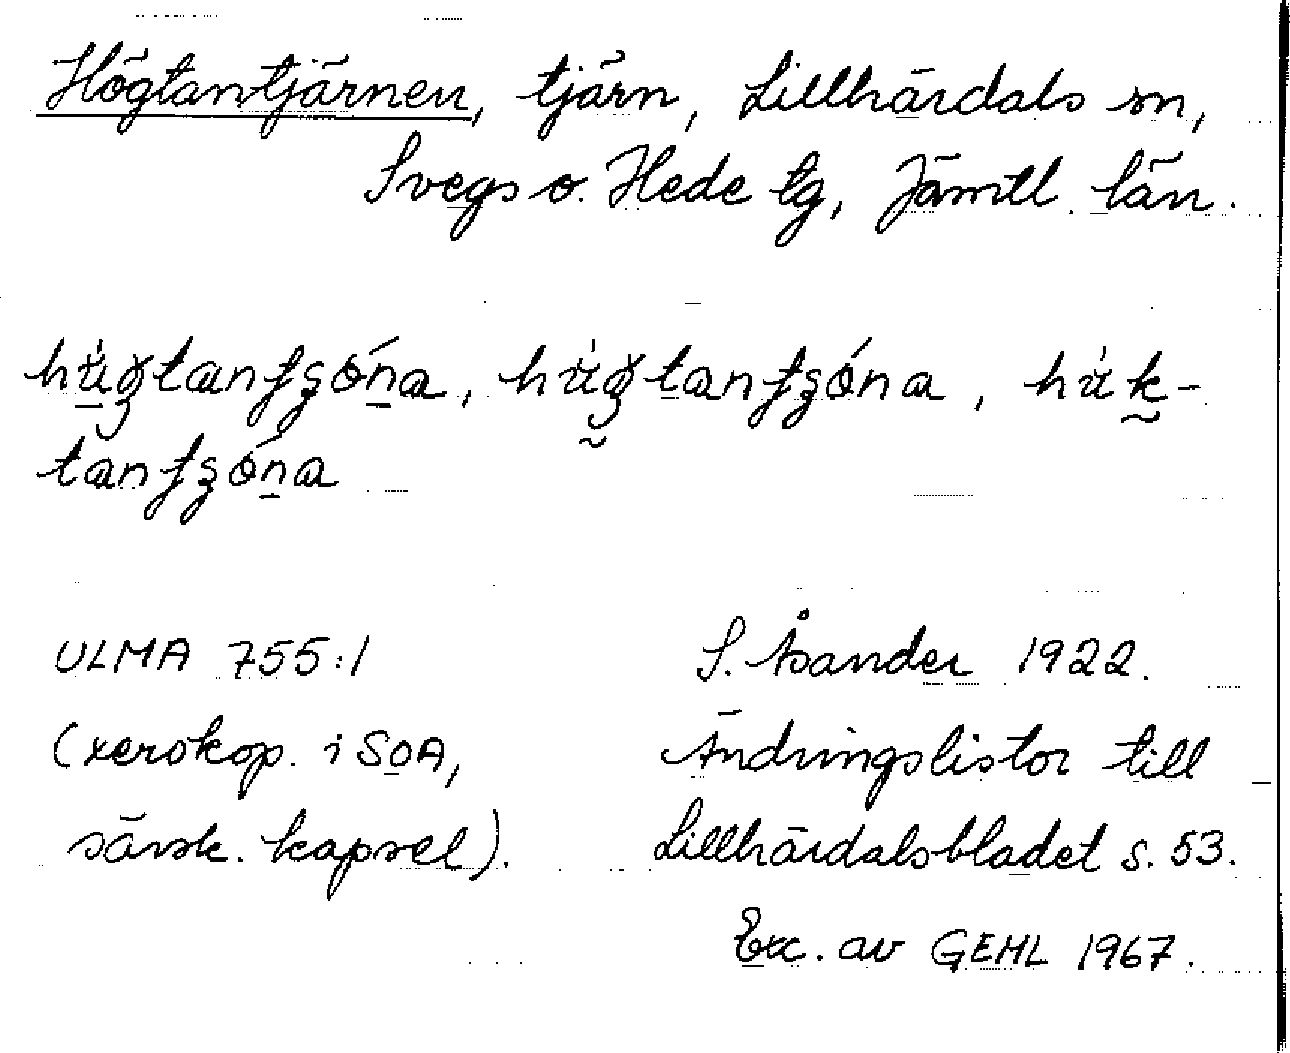 Högtantjärnen, tjärn, Lillhärdals sn,
Svegs o. Hede tg, Jämtl. län.
ULMA 755:1
S. Åsander 1922.
(xerokop. i SOA,
Ändringslistor till
särsk. kapsel).
Lillhärdalsbladet s. 53.
Exc. av GEHL 1967.